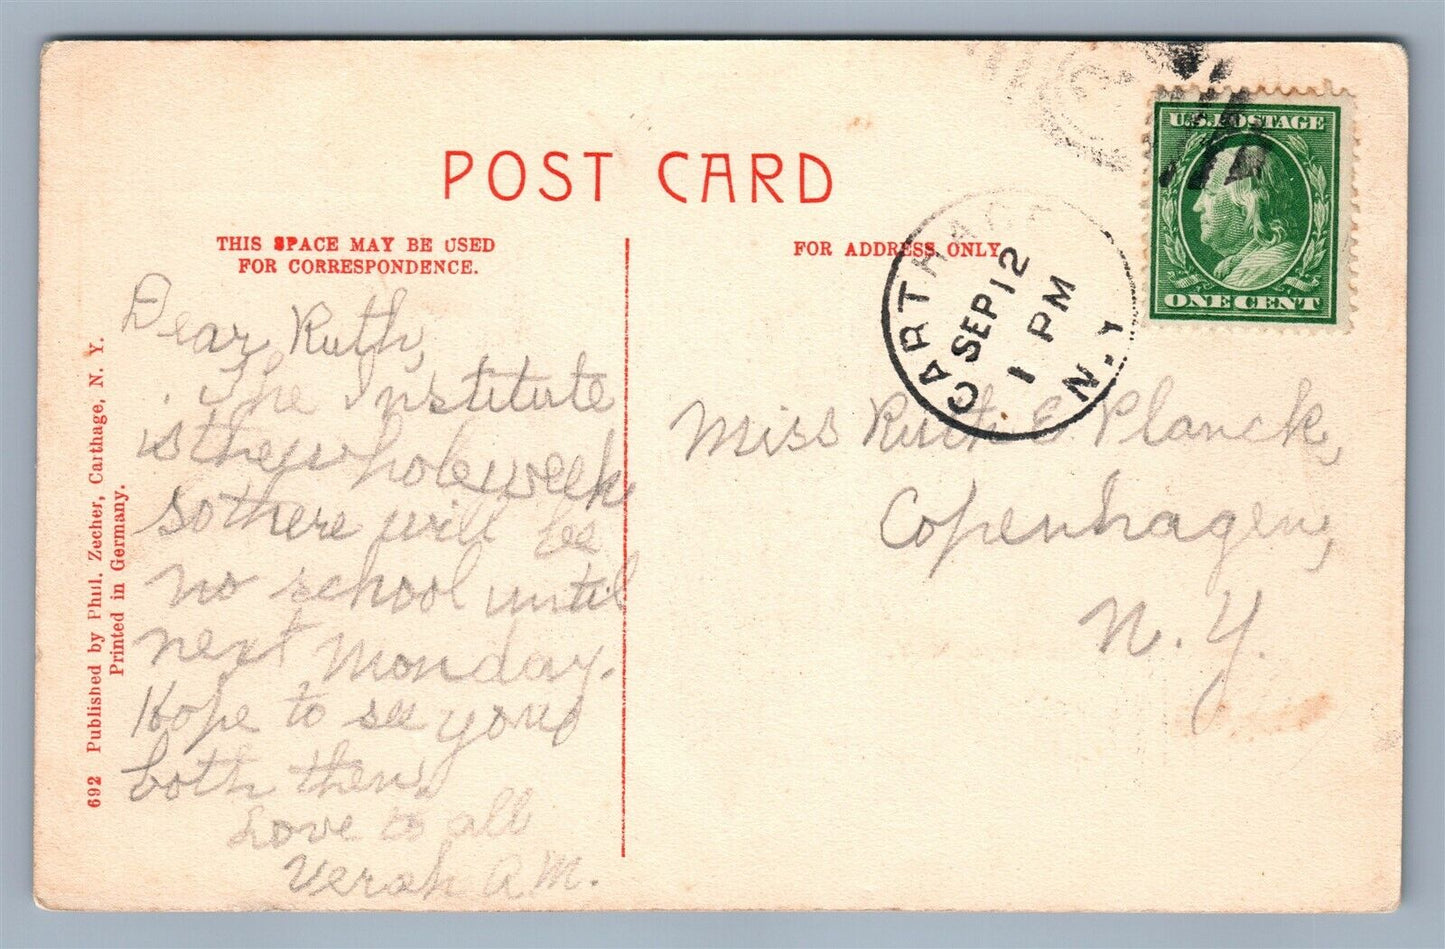 POST CARD
THIS SPACE MAY BE USED
FOR CORRESPONDENCE.
FOR ADDRESS ONLY
Dear Ruth,
The Institute
is the whole week
so there will be
no school until
next Monday.
Hope to see you
both then.
Love to all
Verah A M.
Miss Ruth E Planck,
Copenhagen,
N. Y.
CARTHAGE
SEP 12
1 PM
N.Y
U.S. POSTAGE
ONE CENT
692 Published by Phil. Zecher, Carthage, N. Y.
Printed in Germany.